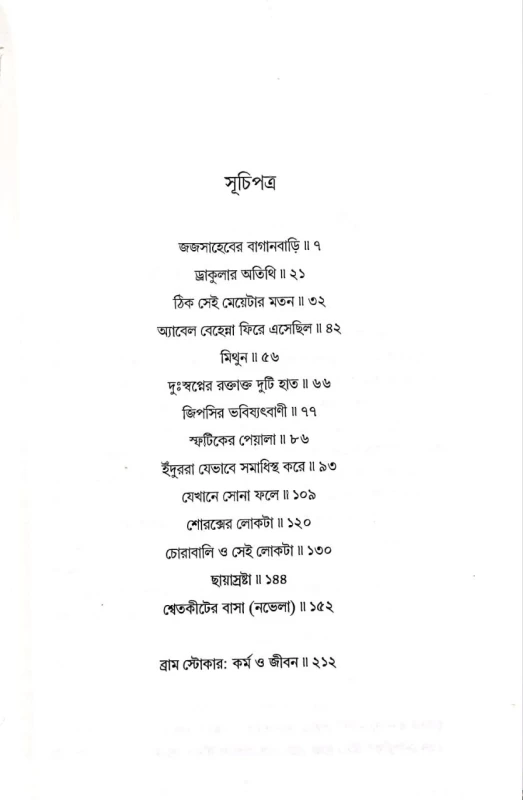 সূচিপত্র
জজসাহেবের বাগানবাড়ি॥ ৭
ড্রাকুলার অতিথি॥ ২১
ঠিক সেই মেয়েটার মতন॥ ৩২
অ্যাবেল বেহেন্না ফিরে এসেছিল॥ ৪২
মিথুন॥ ৫৬
দুঃস্বপ্নের রক্তাক্ত দুটি হাত॥ ৬৬
জিপসির ভবিষ্যৎবাণী॥ ৭৭
স্ফটিকের পেয়ালা॥ ৮৬
ইঁদুররা যেভাবে সমাধিস্থ করে॥ ৯৩
যেখানে সোনা ফলে॥ ১০৯
শোরক্সের লোকটা॥ ১২০
চোরাবালি ও সেই লোকটা॥ ১৩০
ছায়াস্রষ্টা॥ ১৪৪
শ্বেতকীটের বাসা (নভেলা)॥ ১৫২
ব্রাম স্টোকার: কর্ম ও জীবন॥ ২১২